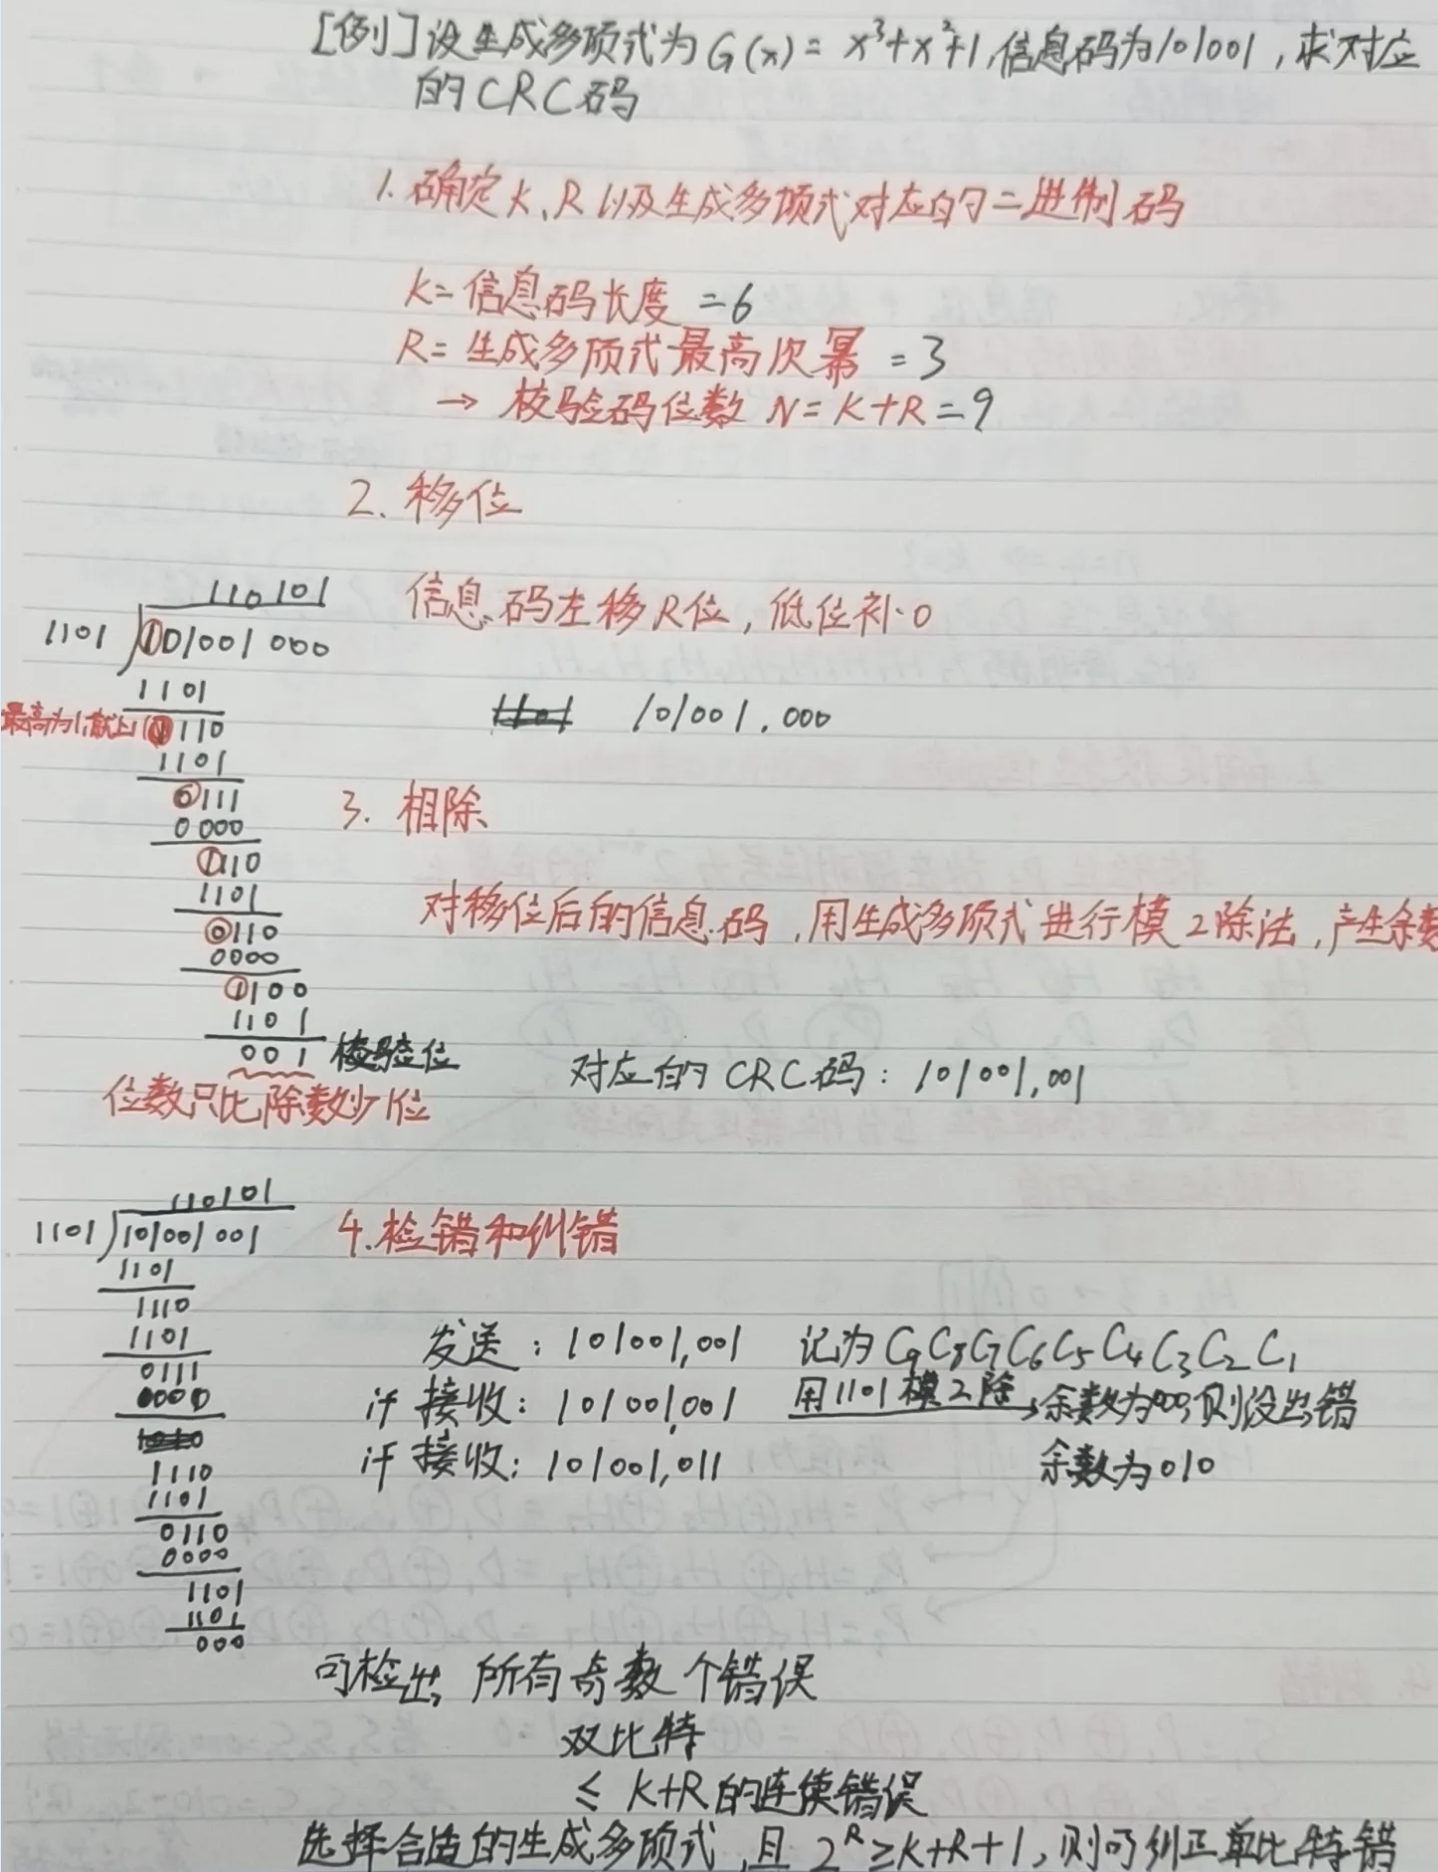 [例]设生成多项式为G(x)= x³+x²+1,信息码为101001,求对应
的CRC码
1.确定K、R以及生成多项式对应的二进制码
K=信息码长度 =6
R=生成多项式最高次幂 =3
→ 校验码位数 N=K+R=9
2.移位
信息码左移R位,低位补0
101001,000
110101
1101 101001000
1101
最高为1,就上1 1110
1101
0111
0000
1110
1101
0110
0000
1100
1101
001 校验位
位数只比除数少1位
3.相除
对移位后的信息码,用生成多项式进行模2除法,产生余数
对应的CRC码:101001,001
4.检错和纠错
110101
1101 101001001
1101
1110
1101
0111
0000
1110
1101
0110
0000
1101
1101
000
发送:101001,001 记为C₉C₈C₇C₆C₅C₄C₃C₂C₁
if接收:101001,001 用1101模2除 → 余数为000,则没出错
if接收:101001,011 余数为010
可检出 所有奇数个错误
双比特
≤ K+R的连续错误
选择合适的生成多项式,且2ᴿ≥K+R+1,则可纠正单比特错